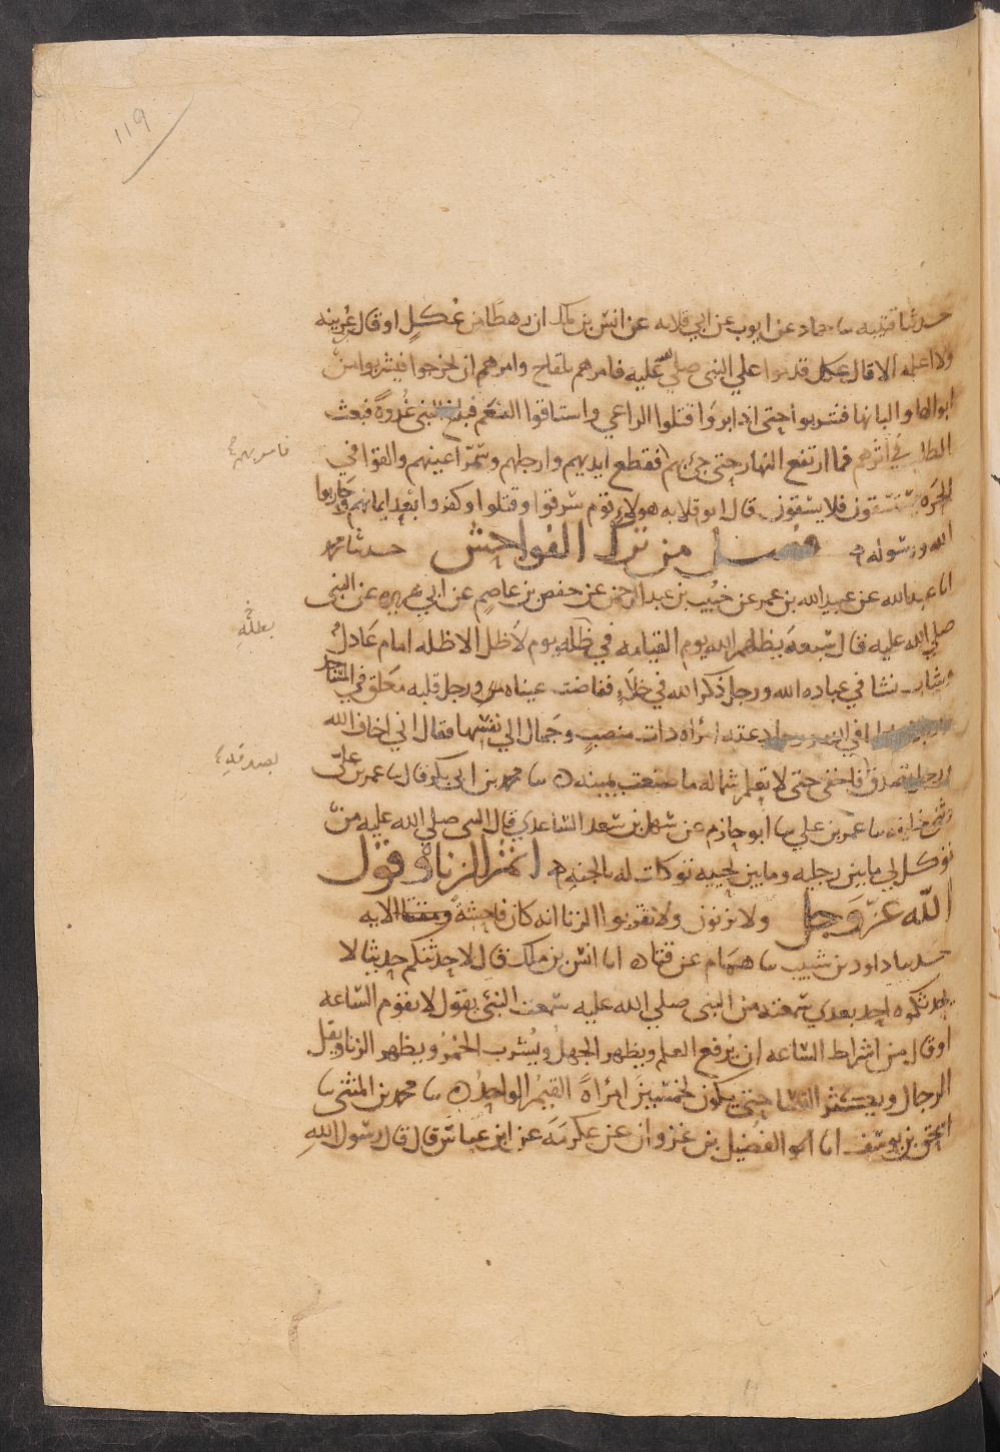 ١١٩
حدثنا قتيبه سا حماد عن ايوب عن ابي قلابه عن انس بن ملك ان رهطا من عكل او قال عرينه
ولا اعلمه الا قال عكل قدموا علي النبي صلي الله عليه فامرهم بلقاح وامرهم ان يخرجوا فيشربوا من
ابوالها والبانها فشربوا حتي اذا بروا قتلوا الراعي واستاقوا النعم فبلغ النبي غدوة فبعث
الطلب في اثرهم فما ارتفع النهار حتي جي بهم فقطع ايديهم وارجلهم وسمر اعينهم والقوا في
فامر بهم
الحره يستسقون فلا يسقون قال ابو قلابه هولاء قوم سرقوا وقتلوا وكفروا بعد ايمانهم وحاربوا
الله ورسوله فضل من ترك الفواحش حدثنا محمد
انا عبد الله عن عبيد الله بن عمر عن خبيب بن عبد الرحمن عن حفص بن عاصم عن ابي هريره عن النبي
صلي الله عليه قال سبعة يظلهم الله يوم القيامه في ظله يوم لا ظل الا ظله امام عادل
وشاب نشا في عباده الله ورجل ذكر الله في خلاء ففاضت عيناه ورجل قلبه معلق في المساجد
في الله ورجل دعته امراه ذات منصب وجمال الي نفسها فقال اني اخاف الله
ورجل تصدق فاخفي حتي لا تعلم شماله ما صنعت يمينه سا محمد بن ابي بكر قال سا عمر بن علي
بصدقه
وثني خليفه سا عمر بن علي سا ابو حازم عن سهل بن سعد الساعدي قال النبي صلي الله عليه من
توكل لي ما بين رجليه وما بين لحييه توكلت له بالجنه اثم الزناه وقول
الله عز وجل ولا يزنون ولا تقربوا الزنا انه كان فاحشة ومقتا الايه
حدثنا داود بن شبيب سا همام عن قتاده انا انس بن ملك قال لاحدثنكم حديثا لا
يحدثكموه احد بعدي سمعته من النبي صلي الله عليه سمعت النبي يقول لا تقوم الساعه
او قال من اشراط الساعه ان يرفع العلم ويظهر الجهل ويشرب الخمر ويظهر الزنا ويقل
الرجال ويكثر النسا حتي يكون لخمسين امراة القيم الواحد سا محمد بن المثني سا
اسحق بن يوسف انا الفضيل بن غزوان عن عكرمة عن ابن عباس قال قال رسول الله